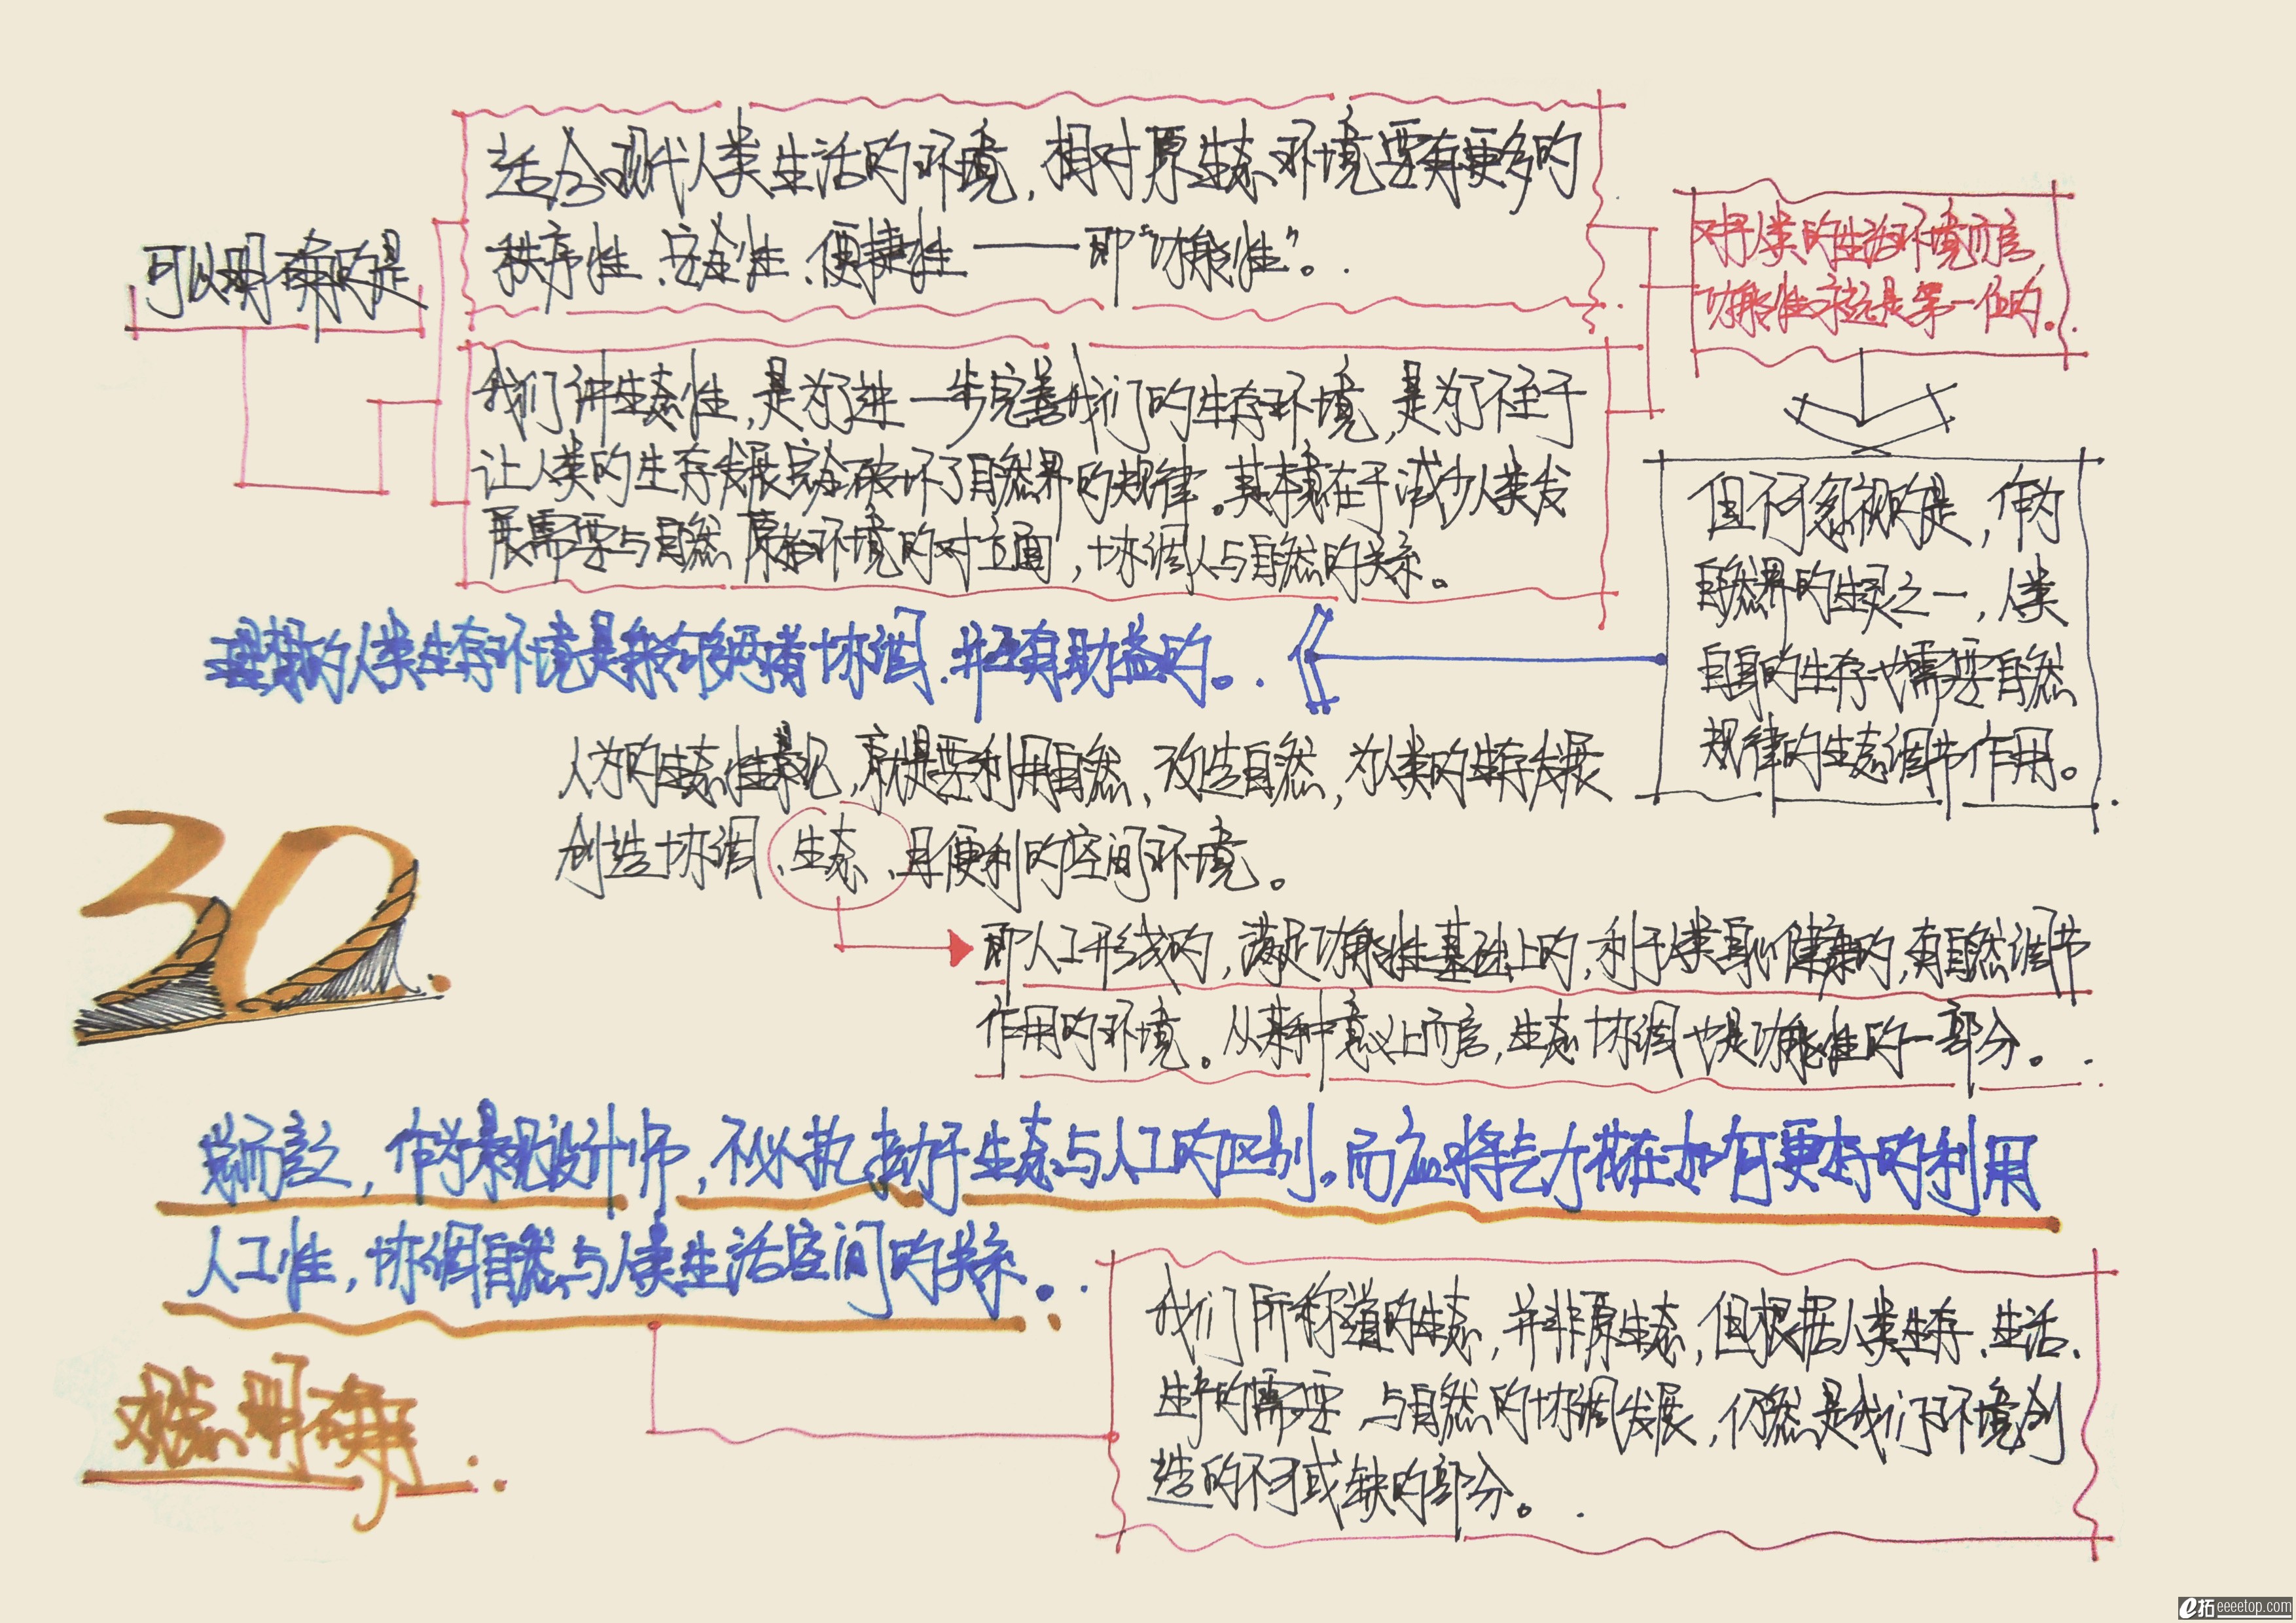 可以明确的是
适合现代人类生活的环境，相对原生态环境要有更多的
秩序性、安全性、便捷性——即“功能性”。
对于人类的生活环境而言
功能性永远是第一位的。
我们讲生态性，是为了进一步完善我们的生存环境，是为了不至于
让人类的生存发展完全破坏了自然界的规律。其本意在于减少人类发
展需要与自然原始环境的对立面，协调人与自然的关系。
但不可忽视的是，作为
自然界的生灵之一，人类
自身的生存也需要自然
规律的生态调节作用。
理想的人类生存环境是能够两者协调．并互有助益的。
人为的生态性景观，就是要利用自然、改造自然，为人类的生存发展
创造协调、生态、且便利的空间环境。
即人工形成的，满足功能性基础上的，利于人类身心健康的，有自然调节
作用的环境。从某种意义上而言，生态协调也是功能性的一部分。
30.
总而言之，作为景观设计师，不必执拗于生态与人工的区别。而应将气力花在如何更好的利用
人工性，协调自然与人类生活空间的关系。
我们所称道的生态，并非原生态，但根据人类生存、生活、
生产的需要 与自然的协调发展，仍然是我们环境创
造的不可或缺的部分。
观点明确
e拓 eeeetop.com